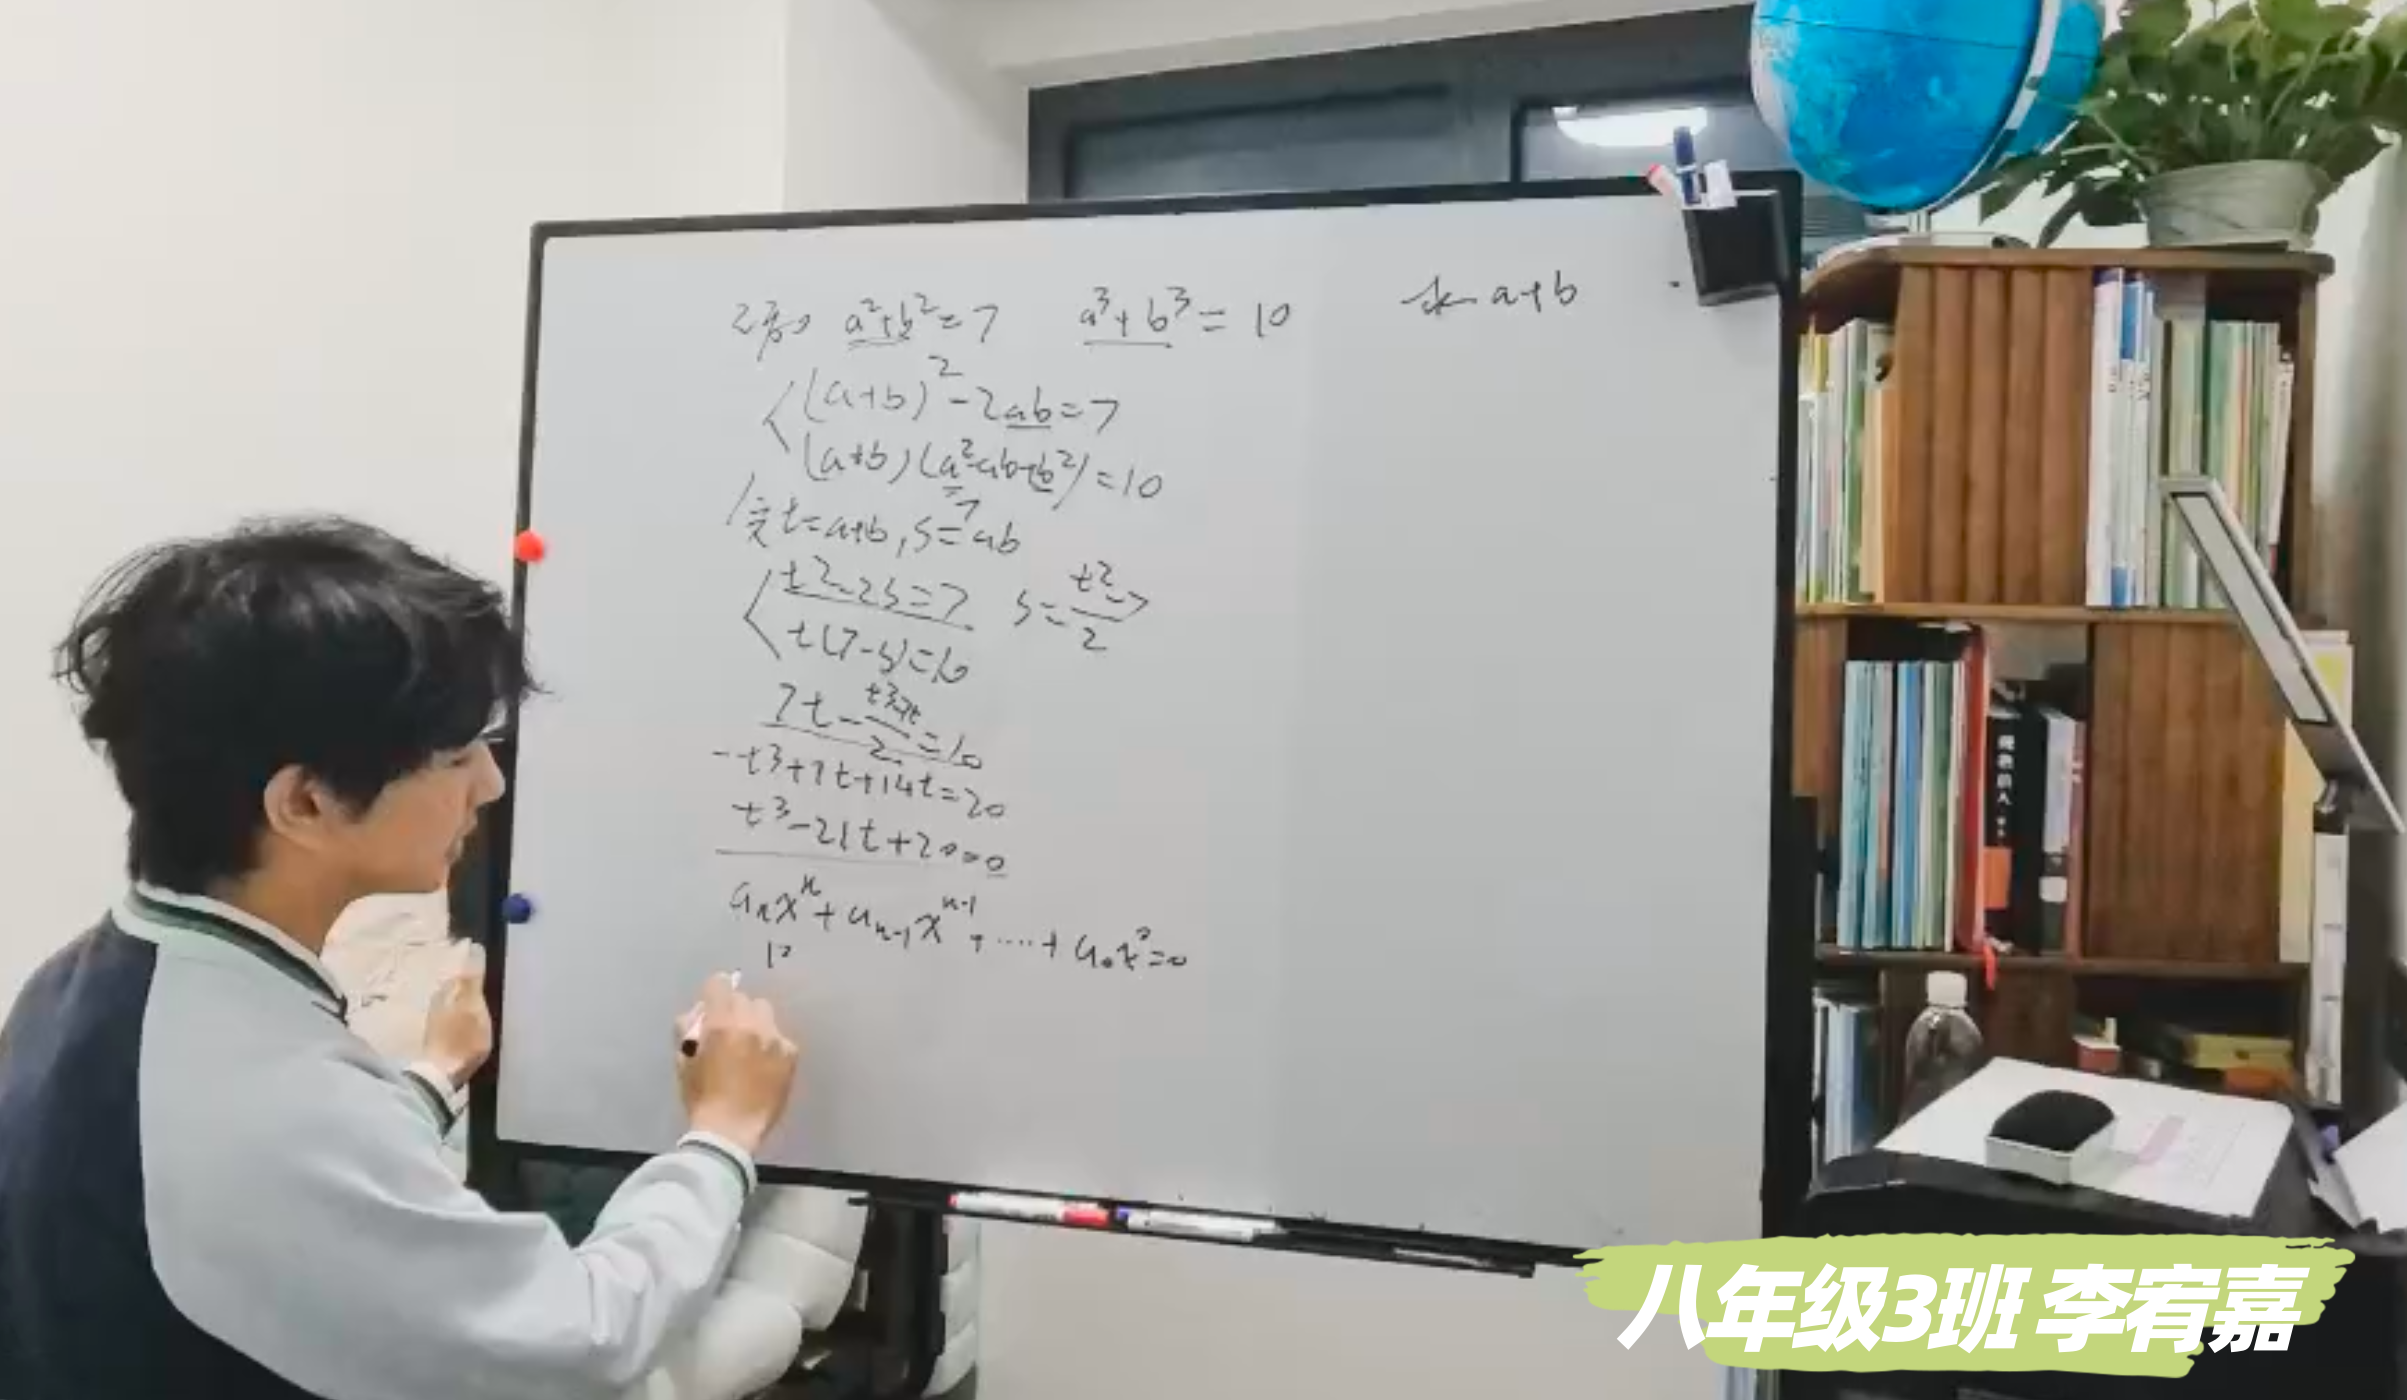 已知 a²+b²=7 a³+b³=10 求 a+b
(a+b)²-2ab=7
(a+b)(a²-ab+b²)=10
=7
变 t=a+b, s=ab
t²-2s=7 s=(t²-7)/2
t(7-s)=10
7t-(t³-7t)/2=10
-t³+7t+14t=20
t³-21t+20=0
aₙxⁿ+aₙ₋₁xⁿ⁻¹+....+a₀x⁰=0
八年级3班 李宥嘉